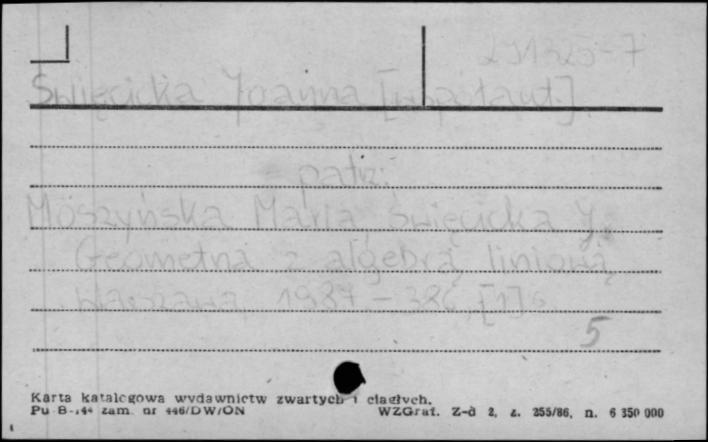 231325-7
Święcicka Joanna [współaut.]
patrz:
Moszyńska Maria, Święcicka J.
Geometria z algebrą liniową
Warszawa, 1987. - 386, [1] s.
5
Karta katalogowa wydawnictw zwartych i ciągłych.
Pu B-144 zam. nr 446/DW/ON WZGraf. Z-d 2, z. 255/86, n. 6 350 000